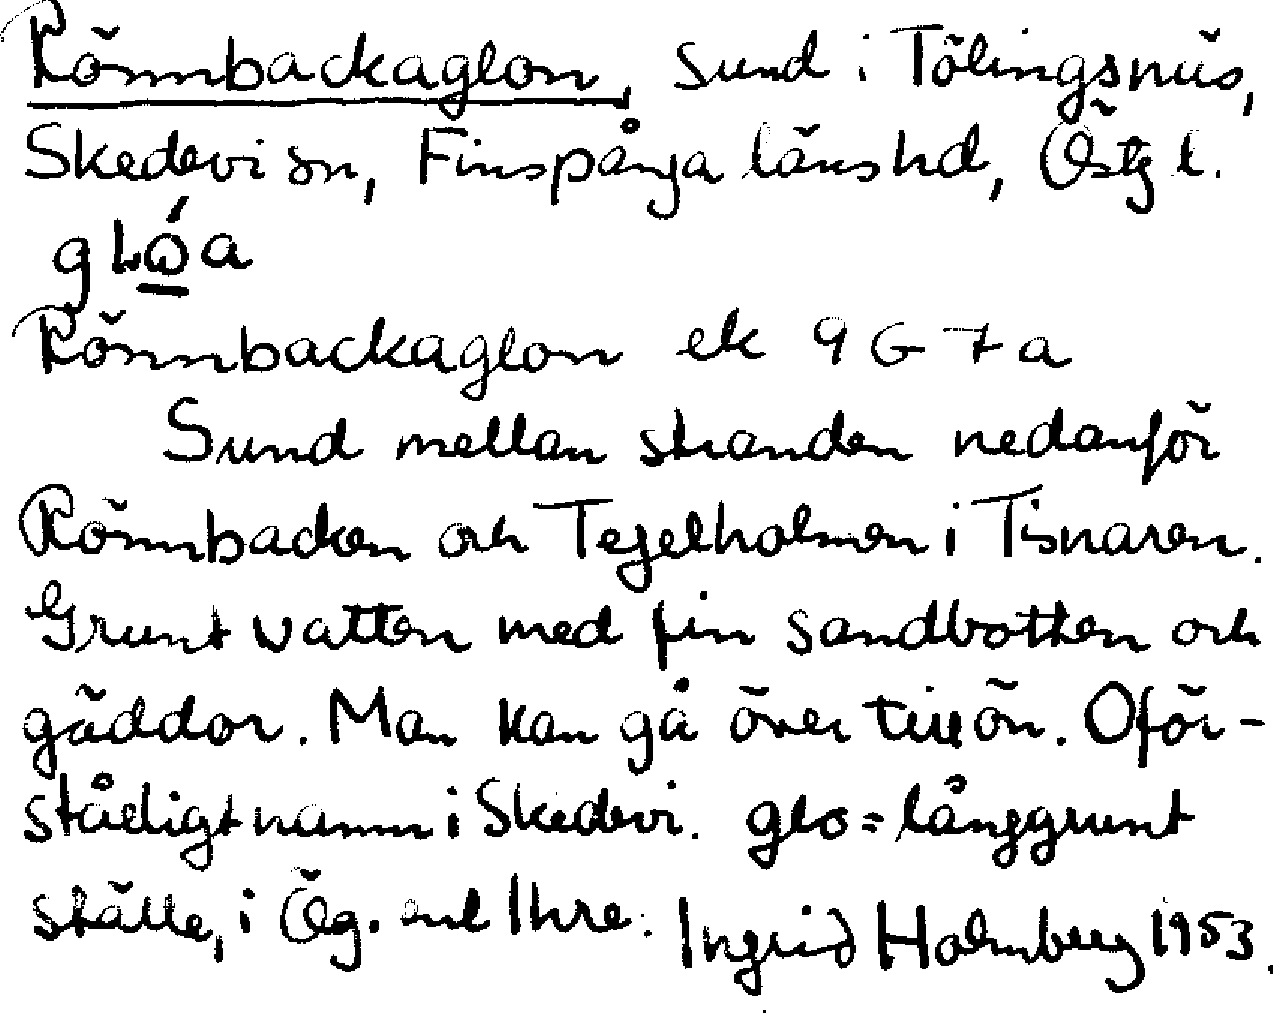 Rönnbackaglon, sund i Tölingsnäs,
Skedevi sn, Finspånga länshd, Östg l.
Rönnbackaglon ek 9 G 7 a
Sund mellan stranden nedanför
Rönnbacken och Tegelholmen i Tisnaren.
Grunt vatten med fin sandbotten och
gäddor. Man kan gå över till ön. Oför-
ståeligt namn i Skedevi. glo = långgrunt
ställe, i Ög. enl Ihre. Ingrid Holmberg 1953.